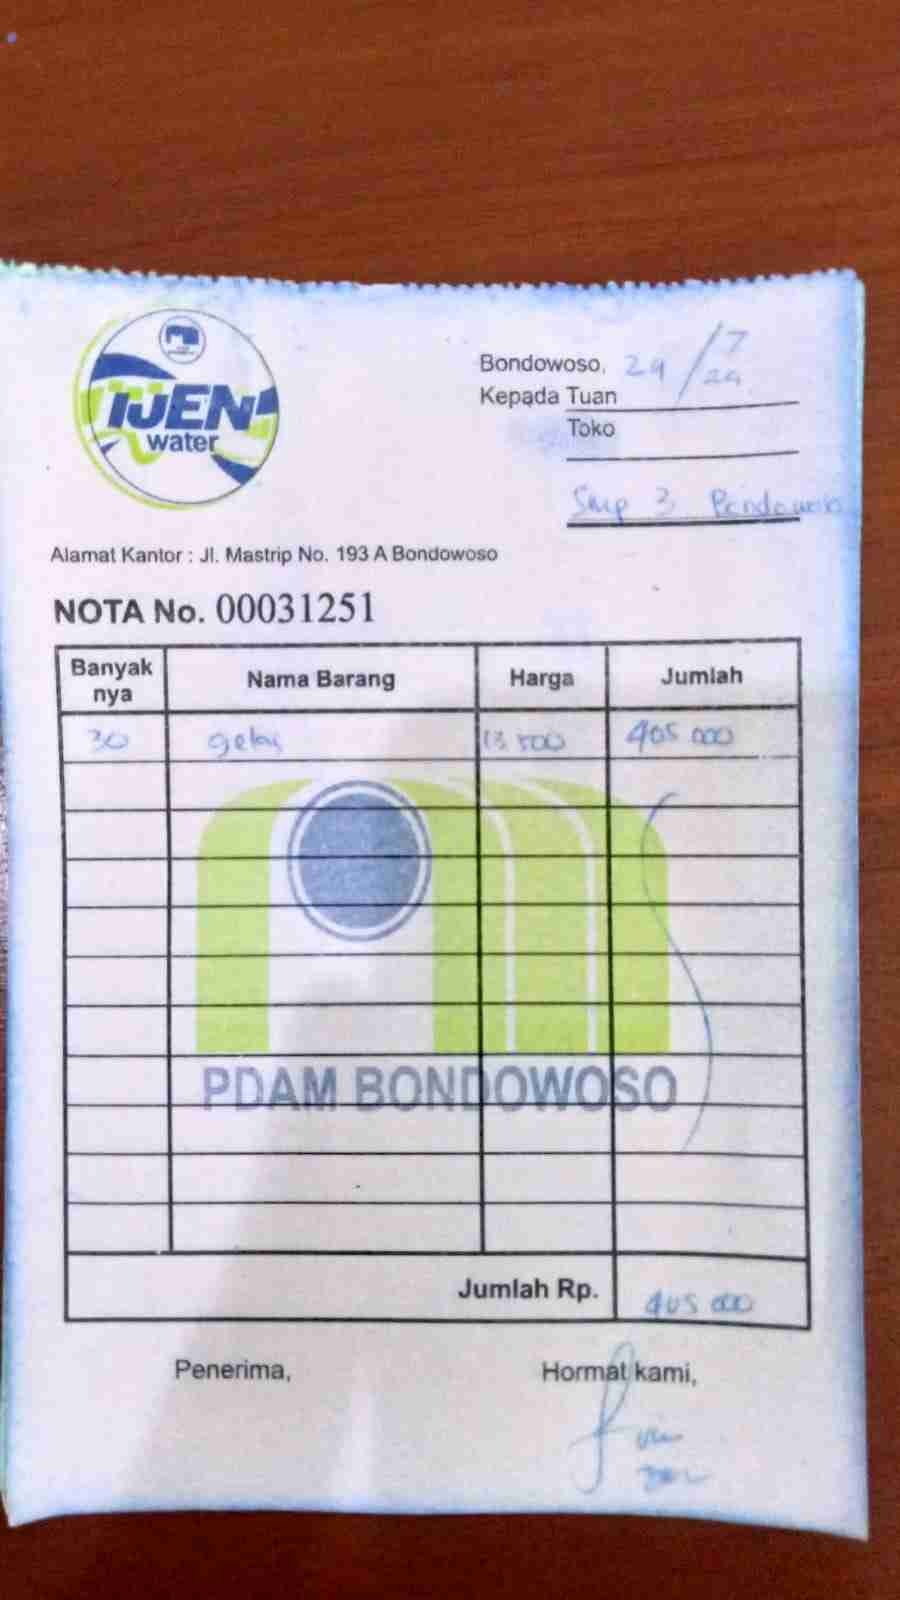 IJEN
water
Bondowoso, 29/7/24
Kepada Tuan
Toko
Smp 3 Bondowoso
Alamat Kantor : Jl. Mastrip No. 193 A Bondowoso
NOTA No. 00031251
Banyak nya Nama Barang Harga Jumlah
30 gelas 13 500 405 000
PDAM BONDOWOSO
Jumlah Rp. 405 000
Penerima, Hormat kami,